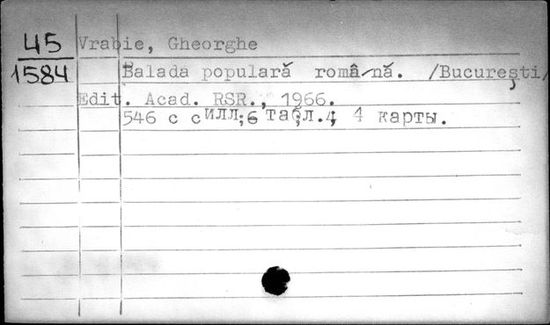 45
1584
Vrabie, Gheorghe
Balada populară română. /București/
Edit. Acad. RSR., 1966.
546 с силл; 6 табл. 4 карты.